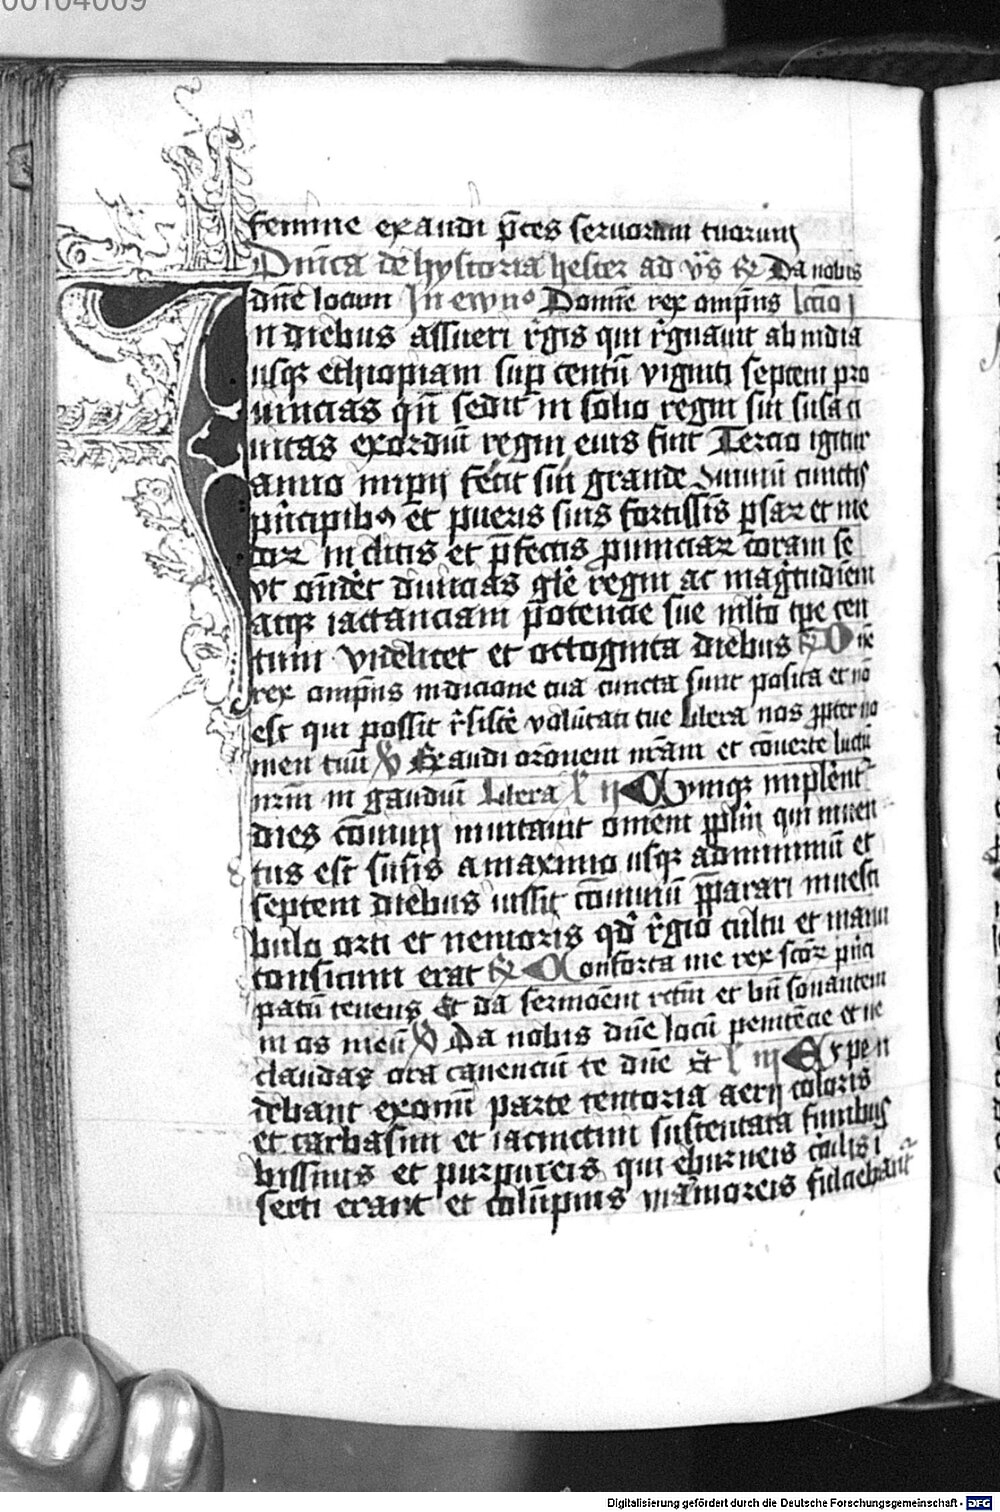 00104009
femine exaudi p̄ces seruorum tuorum
Dn̄ica de hystoria hester ad v̄s ℟ Da nobis
dn̄e locum In ewnº Domine rex omp̄ns lctio j
In diebus assueri r̄gis qui r̄gnauit ab india
usqꝫ ethiopiam sup centū viginti septem pro
uincias qn̄ sedit in solio regni sui susa ci
uitas exordiū regni eius fuit Tercio igitur
anno imperij fecit cunctis
principibꝰ et pueris suis fortissīs psaꝝ et me
doꝝ inclitis et p̄fectis prouinciaꝝ coram se
vt ondēt diuicias glē regni ac magͥtudinem
atqꝫ iactanciam potencie sue ml̄to tpe cen
tum videlicet et octoginta diebus ℟ Dn̄e
rex omp̄ns in dicione tua cuncta sunt posita et nō
est qui possit r̄sistē volūtati tue libera nos ꝓpter no
men tuū ℣ Exaudi orōnem nr̄am et cōuerte luctū
nr̄m in gaudiū libera l ij Cumqꝫ implent͛
dies cōuiuij inuitauit omem pplm̄ qui inuen
tus est susis a maximo usqꝫ ad minimū et
septem diebus iussit cōuiuiū p̄parari in uesti
bulo orti et nemoris qd̄ r̄gio cultu et manu
consitum erat ℟ Conforta me rex scōꝝ pn̄ci
patū tenens Et da sermōem rctm̄ et bn̄ sonantem
in os meū ℣ Da nobis dn̄e locū penitēcie et ne
claudas ora canenciū te dn̄e Et l iij Expen
debant ex omī parte tentoria aerij coloris
et carbasini et iacinctini sustentata funibus
bissinis et purpureis, qui eburneis circulis i
serti erant et colūpnis marmoreis fulciebant͛
Digitalisierung gefördert durch die Deutsche Forschungsgemeinschaft - DFG